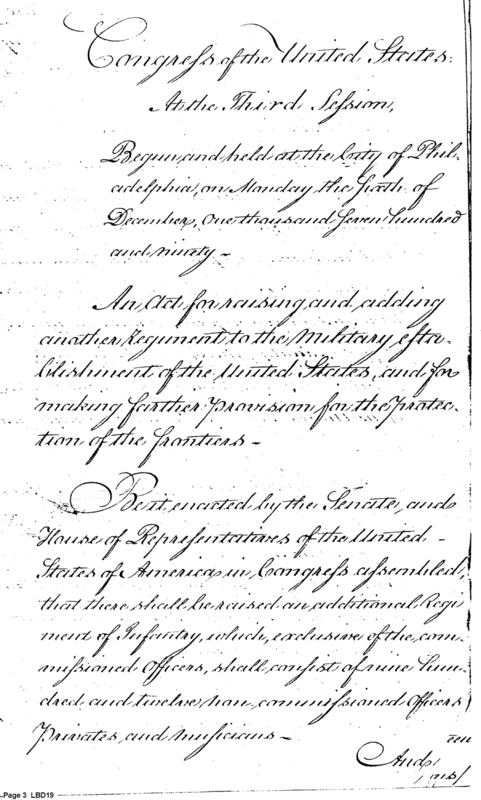 Congress of the United States:
At the Third Session,
Begun and held at the City of Phil-
adelphia, on Monday the sixth of
December, One thousand seven hundred
and ninety –
An Act for raising and adding
another Regiment to the Military esta-
blishment of the United States, and for
making farther Provision for the Protec-
tion of the frontiers –
Be it enacted by the Senate, and
House of Representatives of the United –
States of America in Congress assembled,
that there shall be raised an additional Regi
ment of Infantry, which, exclusive of the com-
missioned Officers, shall consist of nine hun-
dred and twelve non-commissioned Officers
Privates, and musicians –
And,
Page 3 LBD19